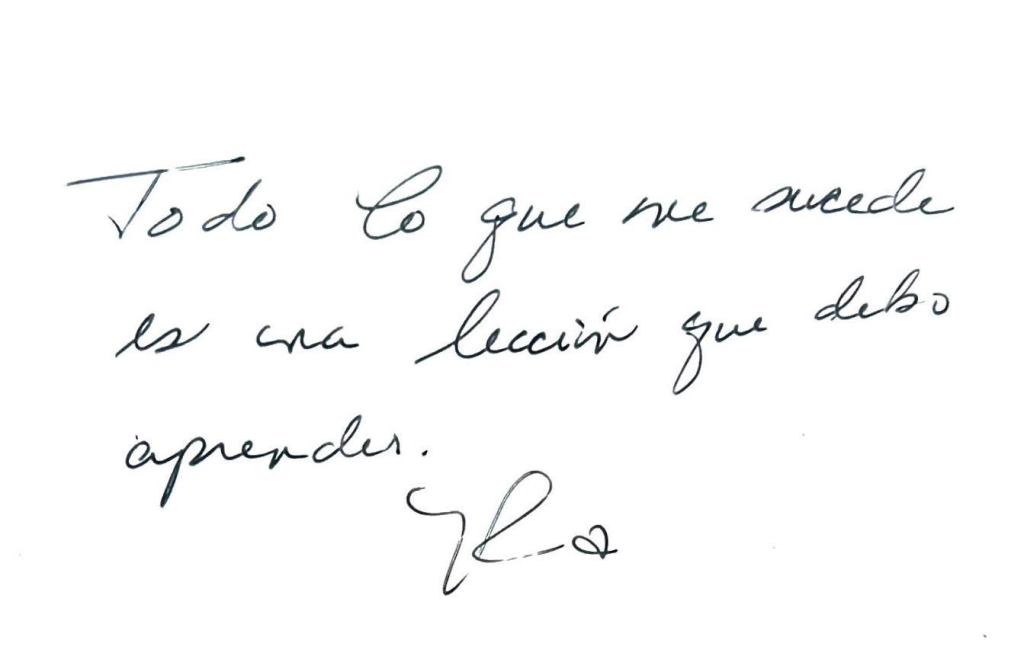 Todo lo que me sucede
es una lección que debo
aprender.